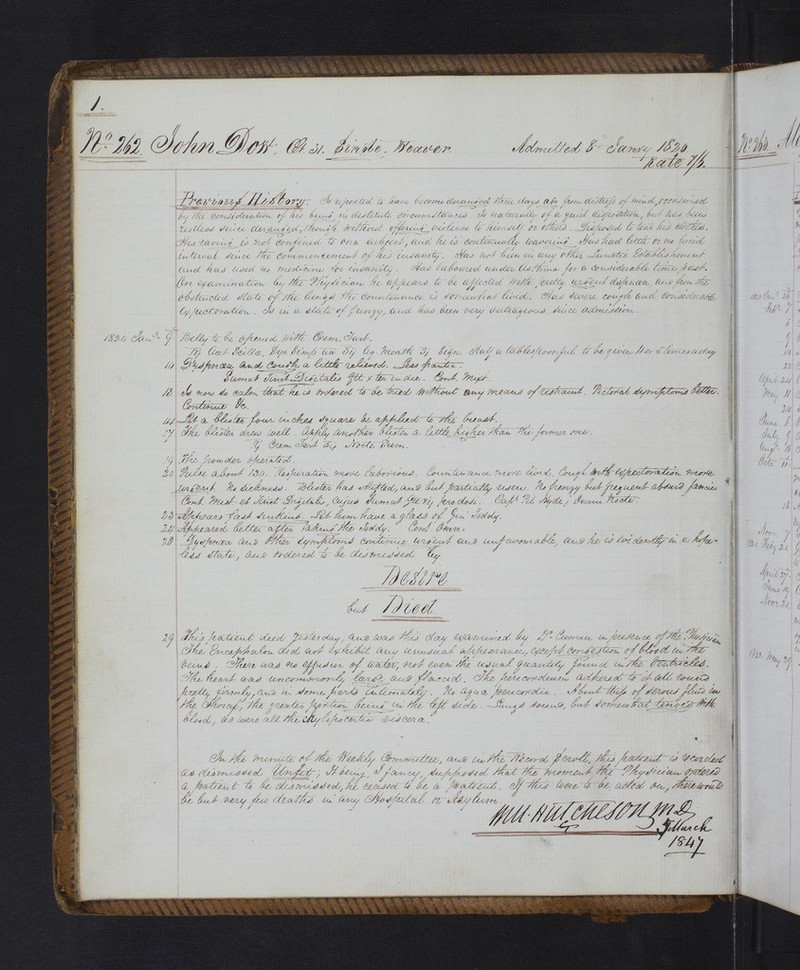 1.
No. 262. John Dow. Æt. 31. Single. Weaver. Admitted 8 Janry 1820
Rate 7/6
Previous History. Is reported to have become deranged three days ago from distress of mind, occasioned
by the consideration of his being in destitute circumstances. Is naturally of a quiet disposition, but has been
restless since deranged, though without offering violence to himself or others. Disposed to tear his clothes.
His raving is not confined to one subject, and he is continually wavering. Has had little or no lucid
interval since the commencement of his insanity. Has not been in any other Lunatic Establishment
and has used no medicine for insanity. Has laboured under Asthma for a considerable time past.
On examination by the Physician he appears to be affected with pretty urgent dyspnœa, and from the
obstructed state of the lungs the countenance is somewhat livid. Has severe cough and considerable
expectoration. Is in a state of frenzy, and has been very outrageous since admission.
9 Belly to be opened with Crem. Tart.
Half a tablespoonful to be given 4 or 5 times a day
10 Dyspnœa and cough a little relieved. Less frantic.
Sumat Tinct. Digitalis gtt x ter in die. Cont. Mist.
13 Is now so calm that he is ordered to be tried without any means of restraint. Pectoral symptoms better.
Continue &c.
14 Let a blister four inches square be applied to the breast.
17 The blister drew well. Apply another blister a little higher than the former one.
19 The powder operated.
20 Pulse about 130. Respiration more laborious. Countenance more livid. Cough with expectoration more
urgent. No sickness. Blister has shifted, and but partially risen. No frenzy but frequent absurd fancies
Cont. Mist. et Tinct. Digitalis, cujus sumat
22 Appears fast sinking. Let him have a glass of Gin Toddy.
24 Appeared better after taking the toddy. Cont. Omn.
28 Dyspnœa and other symptoms continue urgent and unfavourable, and he is evidently in a hope-
less state, and ordered to be dismissed by
Desire
but Died
29 This patient died yesterday, and was this day examined by Dr. in presence of the Physician
The Encephalon did not exhibit any unusual appearance, except congestion of blood in the
veins. There was no effusion of water, not even the usual quantity found in the Ventricles.
The heart was uncommonly large and flaccid. The pericardium adhered to it all round
pretty firmly, and in some parts intimately. No aqua pericardii. About of serous fluid in
the Thorax, the greater portion being in the left side. Lungs sound, but somewhat tinged with
blood, as were all the viscera.
In the minute of the Weekly Committee, and in the Record Scroll, this patient is recorded
as dismissed Unfit; It being, I fancy, supposed that the moment the Physician ordered
a patient to be dismissed, he ceased to be a patient. If this were to be acted on, there would
be but very few deaths in any Hospital or Asylum.
Wm. Hutcheson M.D.
March
1847
No. 263